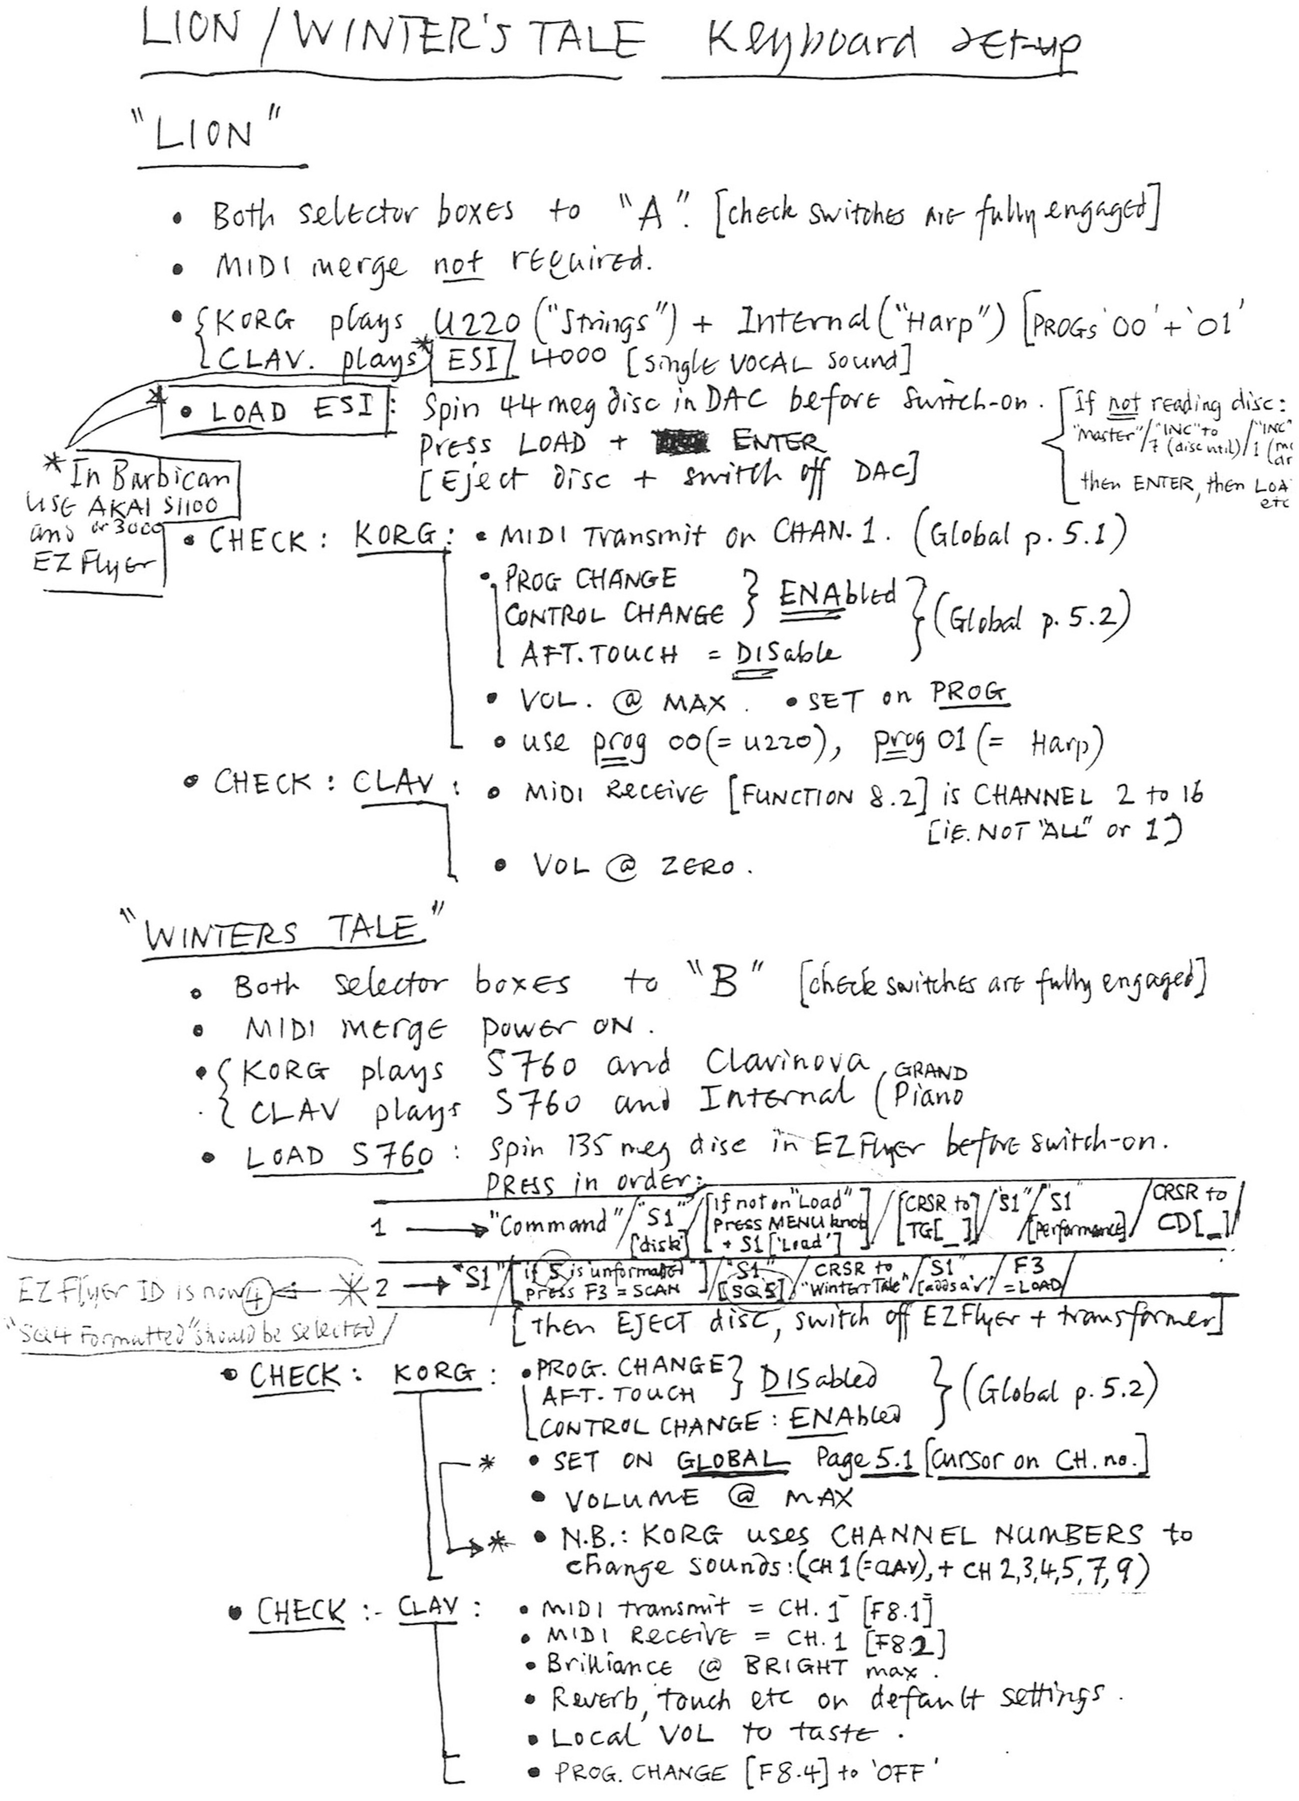 LION / WINTER'S TALE Keyboard set-up
"LION"
• Both selector boxes to "A". [check switches are fully engaged]
• MIDI merge not required.
• { KORG plays U220 ("Strings") + Internal ("Harp") [PROGs '00' + '01'
{ CLAV. plays * ESI 4000 [single VOCAL sound]
* • LOAD ESI : Spin 44 meg disc in DAC before switch-on.
press LOAD + ENTER
[Eject disc + switch off DAC]
[If not reading disc:
"master"/"INC" to 7 (disc util)/"INC" 1
then ENTER, then LOA
etc
* In Barbican
USE AKAI S1100
and or 3000
EZ Flyer
• CHECK : KORG : • MIDI Transmit on CHAN. 1. (Global p. 5.1)
• PROG CHANGE
CONTROL CHANGE } ENAbled } (Global p. 5.2)
AFT. TOUCH = DISable
• VOL. @ MAX. • SET on PROG
• use prog 00 (= U220), prog 01 (= Harp)
• CHECK : CLAV : • MIDI Receive [FUNCTION 8.2] is CHANNEL 2 to 16
[ie. NOT "ALL" or 1]
• VOL @ ZERO.
"WINTERS TALE"
• Both selector boxes to "B" [check switches are fully engaged]
• MIDI merge power ON.
• { KORG plays S760 and Clavinova
{ CLAV plays S760 and Internal (GRAND Piano
• LOAD S760 : Spin 135 meg disc in EZ Flyer before switch-on.
PRESS in order:
1 → "Command" / "S1" [disk] / [if not on "Load" press MENU knob + S1 ['Load'] / [CRSR to TG[_] / "S1" / "S1" [performance] / CRSR to CD[_] /
2 → "S1" / [if 5 is unformatted press F3 = SCAN / "S1" [SQ5] / CRSR to "Winters Tale" / "S1" / F3 = LOAD /
EZ Flyer ID is now 4 ← *
"SQ4 Formatted" should be selected /
[then EJECT disc, switch off EZ Flyer + transformer]
• CHECK : KORG : • PROG. CHANGE
AFT. TOUCH } DISabled } (Global p. 5.2)
CONTROL CHANGE : ENAbled
* • SET ON GLOBAL Page 5.1 [cursor on CH. no.]
• VOLUME @ MAX
* • N.B.: KORG uses CHANNEL NUMBERS to
change sounds: (CH 1 (= CLAV), + CH 2,3,4,5,7,9)
• CHECK :- CLAV : • MIDI transmit = CH. 1 [F8.1]
• MIDI Receive = CH. 1 [F8.2]
• Brilliance @ BRIGHT max.
• Reverb, touch etc on default settings.
• Local VOL to taste.
• PROG. CHANGE [F8.4] to 'OFF'